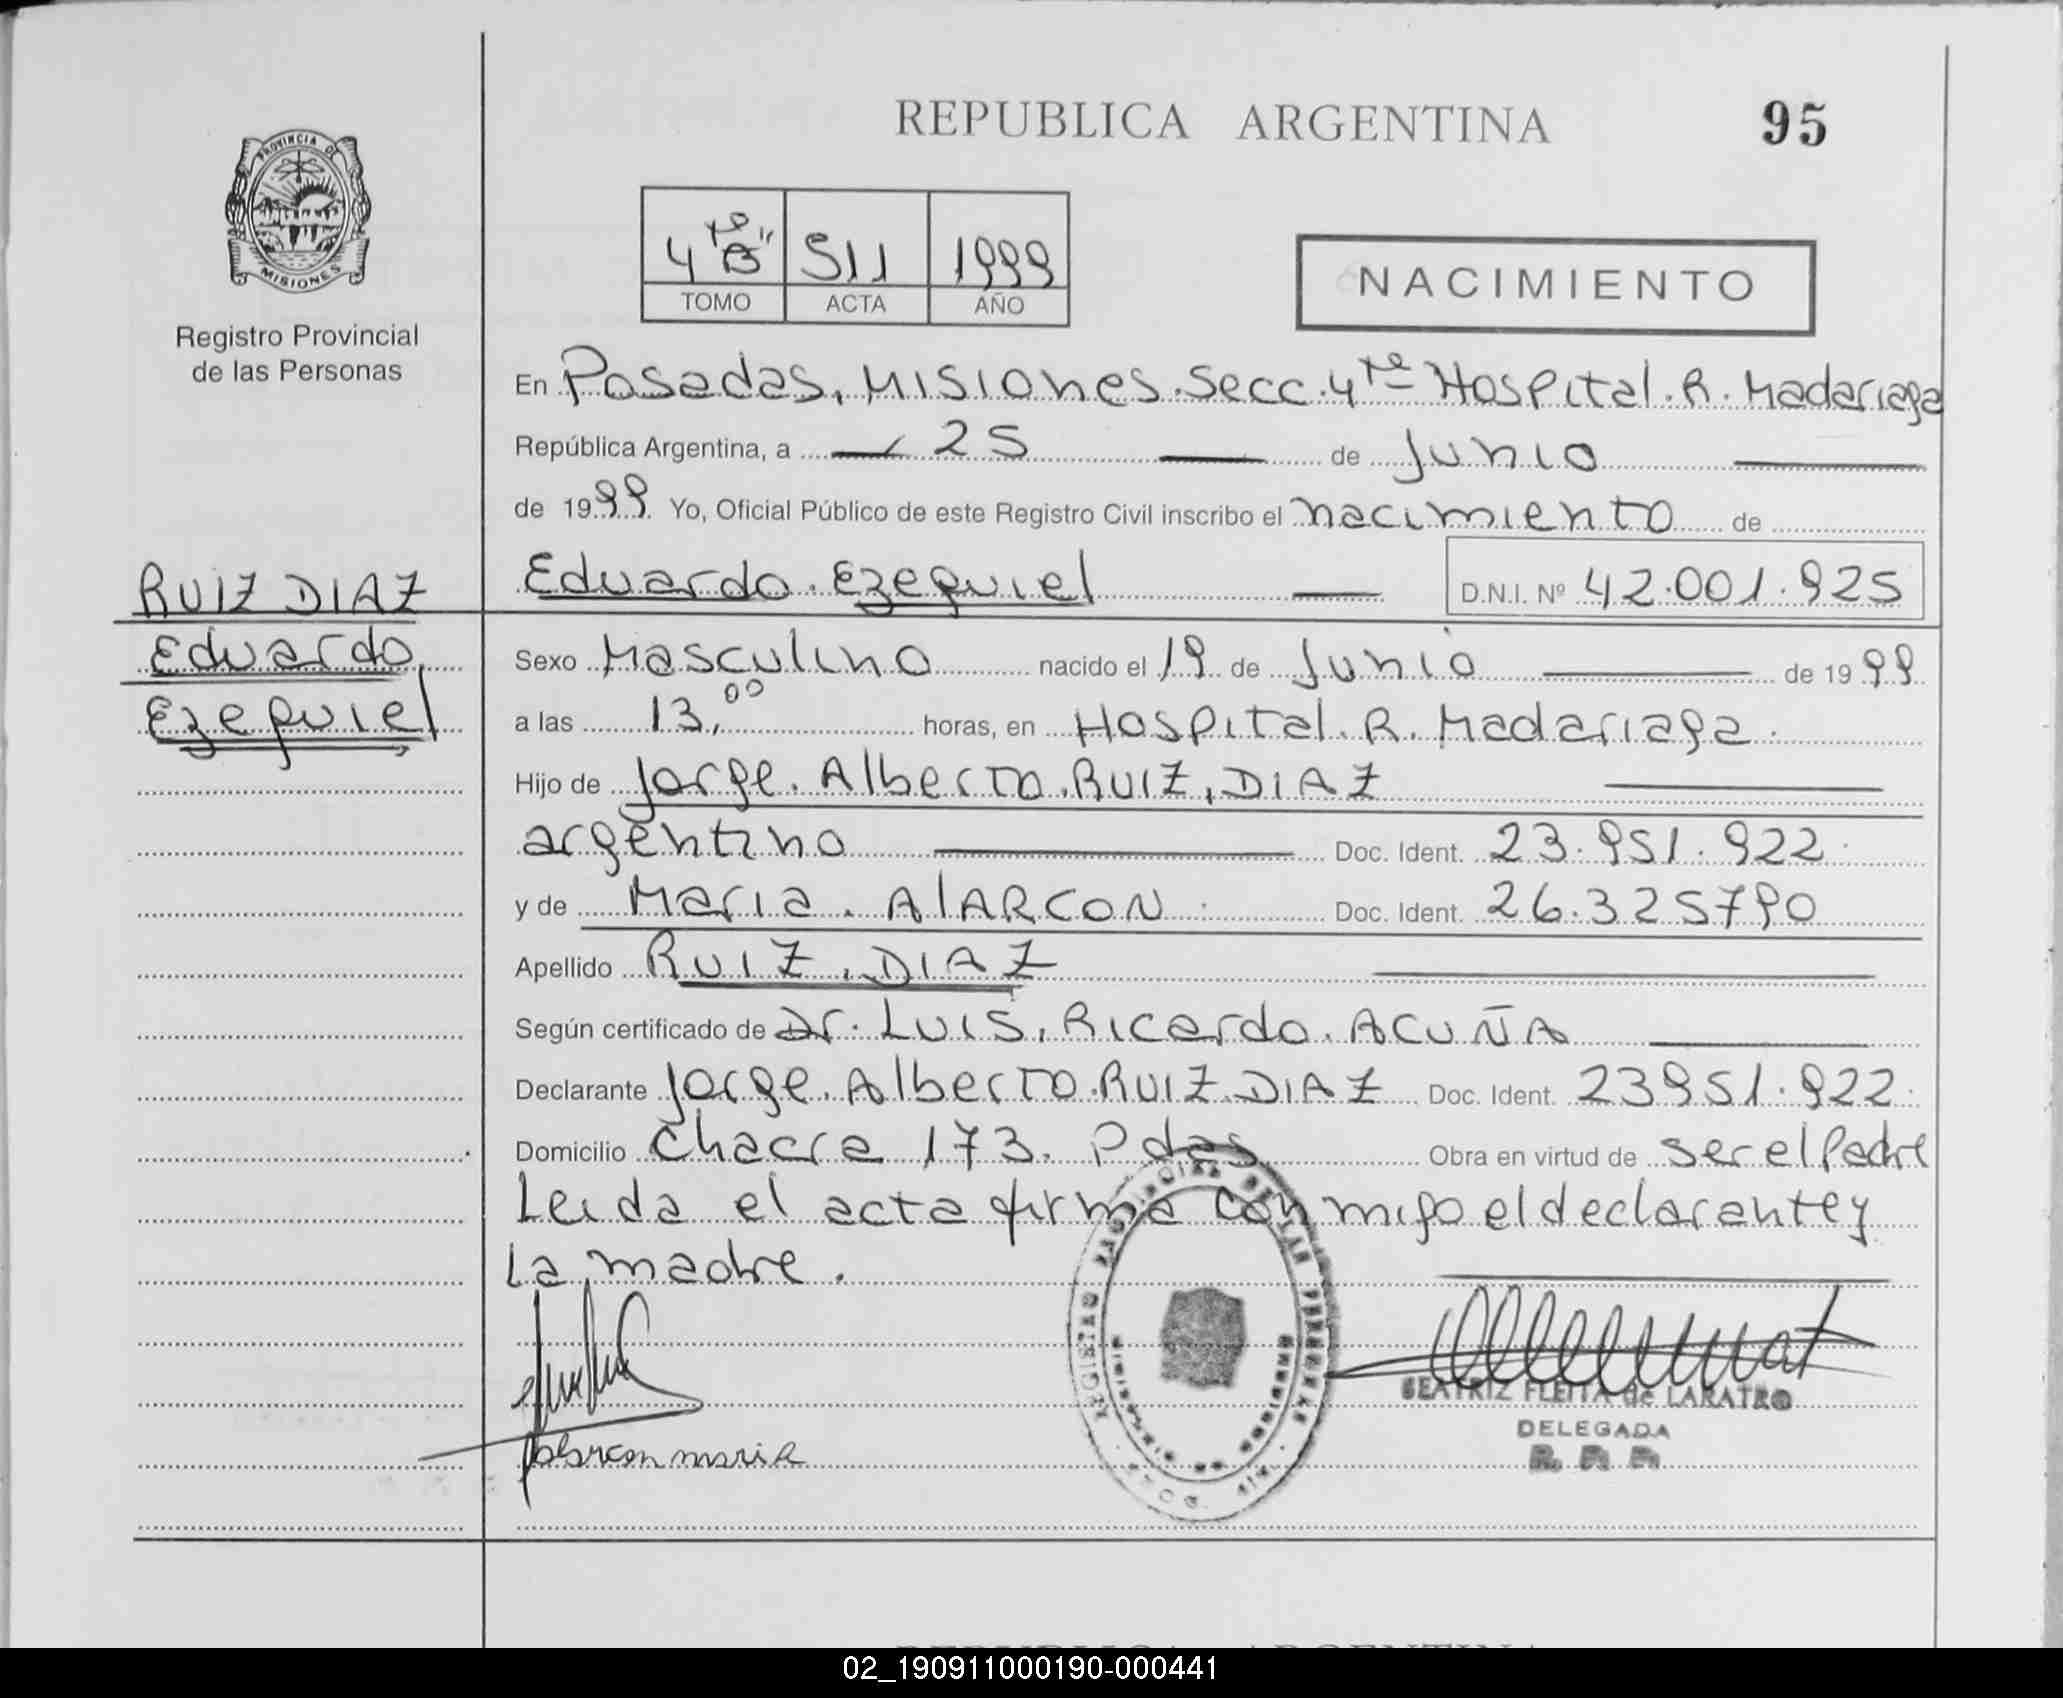 REPUBLICA ARGENTINA
95
PROVINCIA DE
MISIONES
Registro Provincial
de las Personas
4ta "B" 511 1999
TOMO ACTA AÑO
NACIMIENTO
En Posadas, Misiones. Secc. 4ta Hospital. R. Madariaga
República Argentina, a 25 de Junio
de 1999 Yo, Oficial Público de este Registro Civil inscribo el nacimiento de
RUIZ DIAZ
Eduardo
Ezequiel
Eduardo. Ezequiel D.N.I. Nº 42.001.925
Sexo Masculino nacido el 19 de Junio de 1999
a las 13,00 horas, en Hospital. R. Madariaga.
Hijo de Jorge. Alberto. RUIZ, DIAZ
argentino Doc. Ident. 23.951.922.
y de Maria. AlARCON. Doc. Ident. 26.325790
Apellido RUIZ, DIAZ
Según certificado de Dr. LUIS, Ricardo. ACUÑA
Declarante Jorge. Alberto. RUIZ. DIAZ Doc. Ident. 23951.922.
Domicilio Chacra 173. Pdas Obra en virtud de ser el Padre
Leida el acta firma con migo el declarante y
la madre.
BEATRIZ FLEITA de LARATRO
DELEGADA
Alarcon maria
02_190911000190-000441